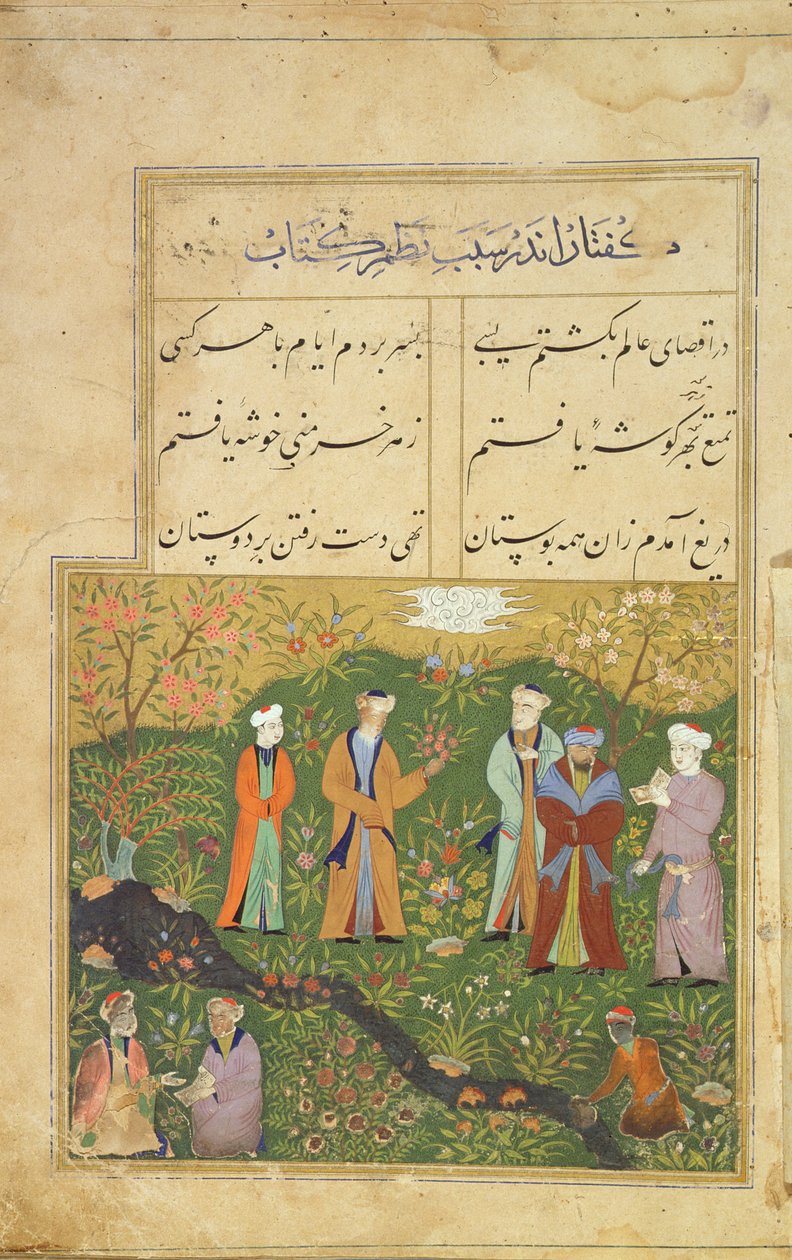 کفتار اندر سبب نظم کتاب
در اقصای عالم بکشتم بسی بسر بردم ایام با هر کسی
تمتع بهر کوشهٔ یافتم زهر خرمنی خوشهٔ یافتم
دریغ آمدم زان همه بوستان تهی دست رفتن بر دوستان